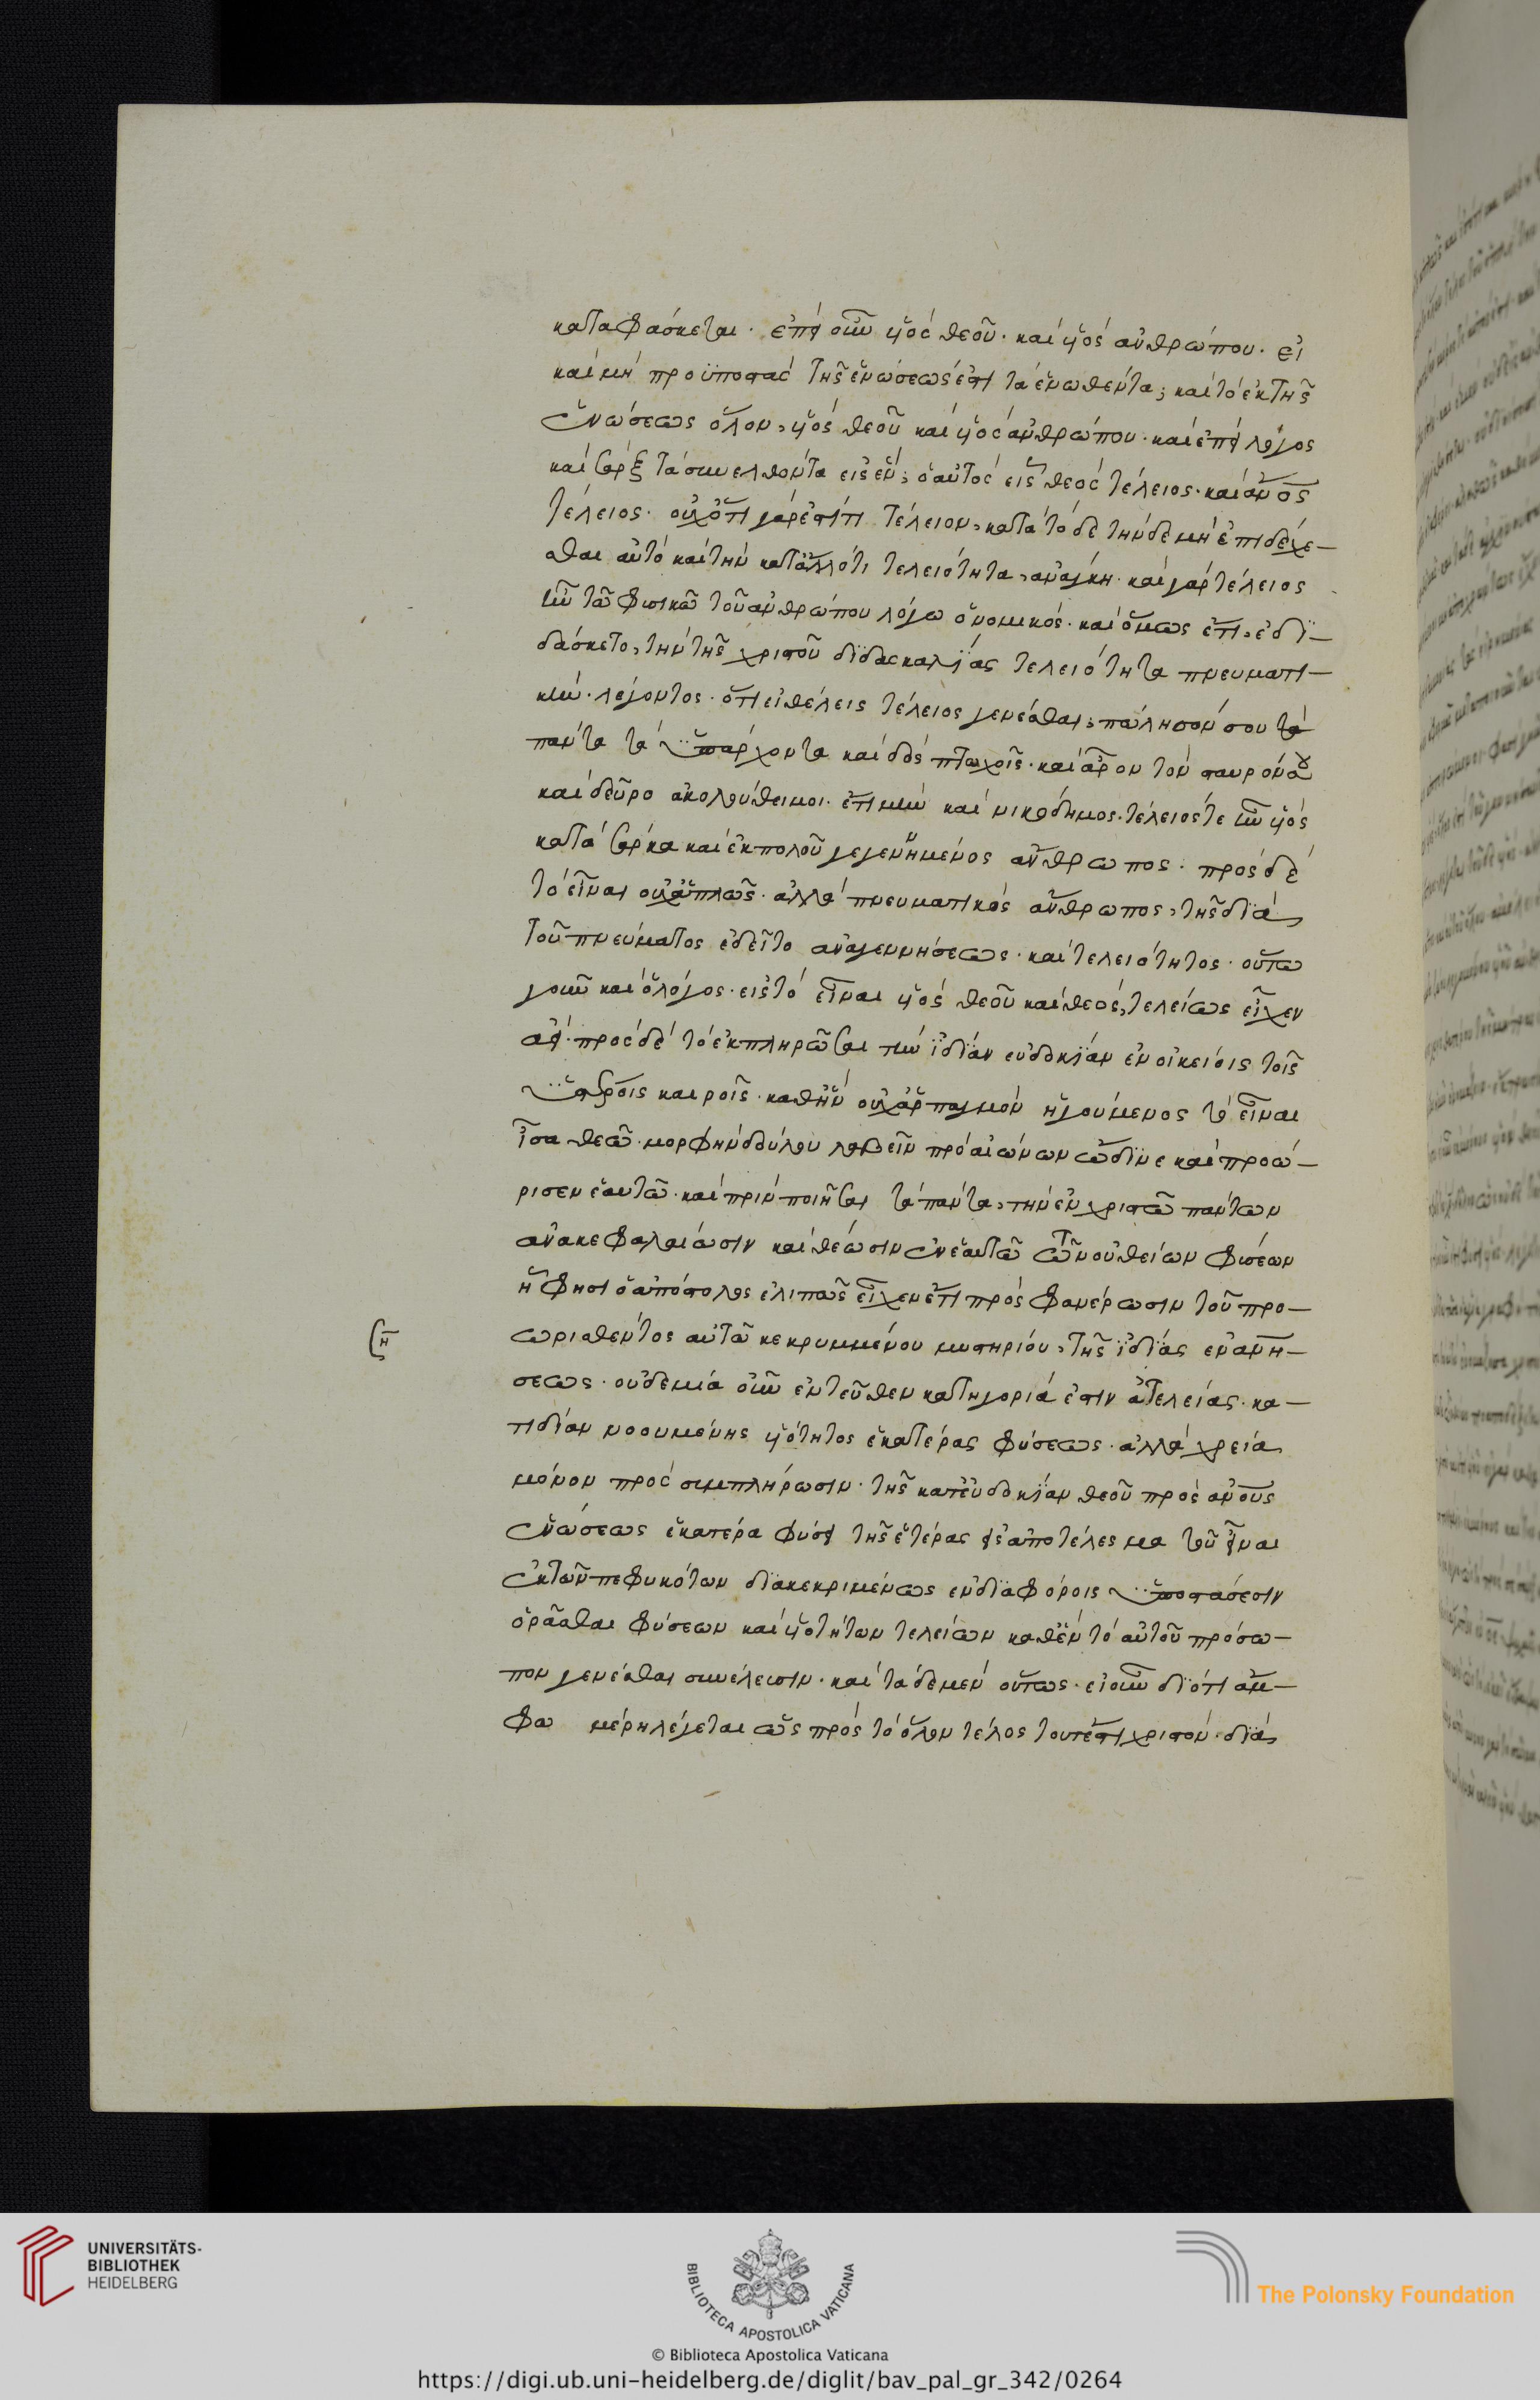 καταφάσκεται. ἐπεὶ οὖν υἱὸς θεοῦ. καὶ υἱὸς ἀνθρώπου. εἰ
καὶ μὴ προϋποστὰς τῆς ἑνώσεως ἐστὶ τὰ ἑνωθέντα; καὶ τὸ ἐκ τῆς
ἑνώσεως ὅλον, υἱὸς θεοῦ καὶ υἱὸς ἀνθρώπου. καὶ ἐπεὶ λόγος
καὶ σὰρξ τὰ συνελθόντα εἰς ἕν; ὁ αὐτὸς εἷς θεὸς τέλειος. καὶ ἄνος
τέλειος. οὐχ ὅτι γάρ ἐστί τι τέλειον, κατὰ τόδε τήνδε μὴ ἐπιδέχε-
σθαι αὐτὸ καὶ τὴν κατάλλό τι τελειότητα, ἀνάγκη. καὶ γὰρ τέλειος
ἦν τῶ φυσικῶ τοῦ ἀνθρώπου λόγω ὁ νομικός. καὶ ὅμως ἔτι, ἐδι-
δάσκετο, τὴν τῆς χριστοῦ διδασκαλίας τελειότητα πνευματι-
κήν. λέγοντος. ὅτι εἰ θέλεις τέλειος γενέσθαι; πώλησόν σου τὰ
πάντα τὰ ὑπάρχοντα καὶ δὸς πτωχοῖς. καὶ ἆρον τὸν σταυρόν σου
καὶ δεῦρο ἀκολούθει μοι. ἔτι μὴν καὶ νικόδημος. τέλειός τε ἦν υἱὸς
κατὰ σάρκα καὶ ἐκ πολοῦ γεγενημένος ἄνθρωπος. πρὸς δὲ
τὸ εἶναι οὐχ ἁπλῶς. ἀλλὰ πνευματικὸς ἄνθρωπος, τῆς διὰ
τοῦ πνεύματος ἐδεῖτο ἀναγεννήσεως. καὶ τελειότητος. οὕτω
γοῦν καὶ ὁ λόγος. εἰς τὸ εἶναι υἱὸς θεοῦ καὶ θεός, τελείως εἶχεν
ἀεί. πρὸς δὲ τὸ ἐκπληρῶσαι τὴν ἰδίαν εὐδοκίαν ἐν οἰκείοις τοῖς
ὑστέροις καιροῖς. καθ' ἣν οὐχ ἁρπαγμὸν ἡγούμενος τὸ εἶναι
ἶσα θεῶ. μορφὴν δούλου λαβεῖν πρὸ αἰώνων ὤδινε καὶ προώ-
ρισεν ἑαυτῶ. καὶ πρὶν ποιῆσαι τὰ πάντα, τὴν ἐν χριστῶ πάντων
ἀνακεφαλαίωσιν καὶ θέωσιν ἐν ἑαυτῶ τῶν οὐ θείων φύσεων
ἥ φησι ὁ ἀπόστολος ἐλιπῶς εἶχεν ἔτι πρὸς φανέρωσιν τοῦ προ-
ωρισθέντος αὐτῶ κεκρυμμένου μυστηρίου, τῆς ἰδίας ἐνανη-
σεως. οὐδεμία οὖν ἐντεῦθεν κατηγορία ἐστιν ἀτελείας. κα-
τιδίαν νοουμένης υἱότητος ἑκατέρας φύσεως. ἀλλὰ χρεία
μόνον πρὸς συμπλήρωσιν. τῆς κατ' εὐδοκίαν θεοῦ πρὸς ἀνους
ἑνώσεως ἑκατέρα φύσει τῆς ἑτέρας εἰς ἀποτέλεσμα τοῦ εἶναι
ἐκ τῶν πεφυκότων διακεκριμένως ἐν διαφόροις ὑποστάσεσιν
ὁρᾶσθαι φύσεων καὶ υἱοτήτων τελείων καθ' ἓν τὸ αὐτοῦ πρόσω-
πον γενέσθαι συνέλευσιν. καὶ τάδε μὲν οὕτως. εἰ οὖν διότι ἄμ-
φω μέρη λέγεται ὡς πρὸς τὸ ὅλον τέλος τουτέστι χριστόν. διὰ
UNIVERSITÄTS-
BIBLIOTHEK
HEIDELBERG
BIBLIOTECA APOSTOLICA VATICANA
The Polonsky Foundation
© Biblioteca Apostolica Vaticana
https://digi.ub.uni-heidelberg.de/diglit/bav_pal_gr_342/0264